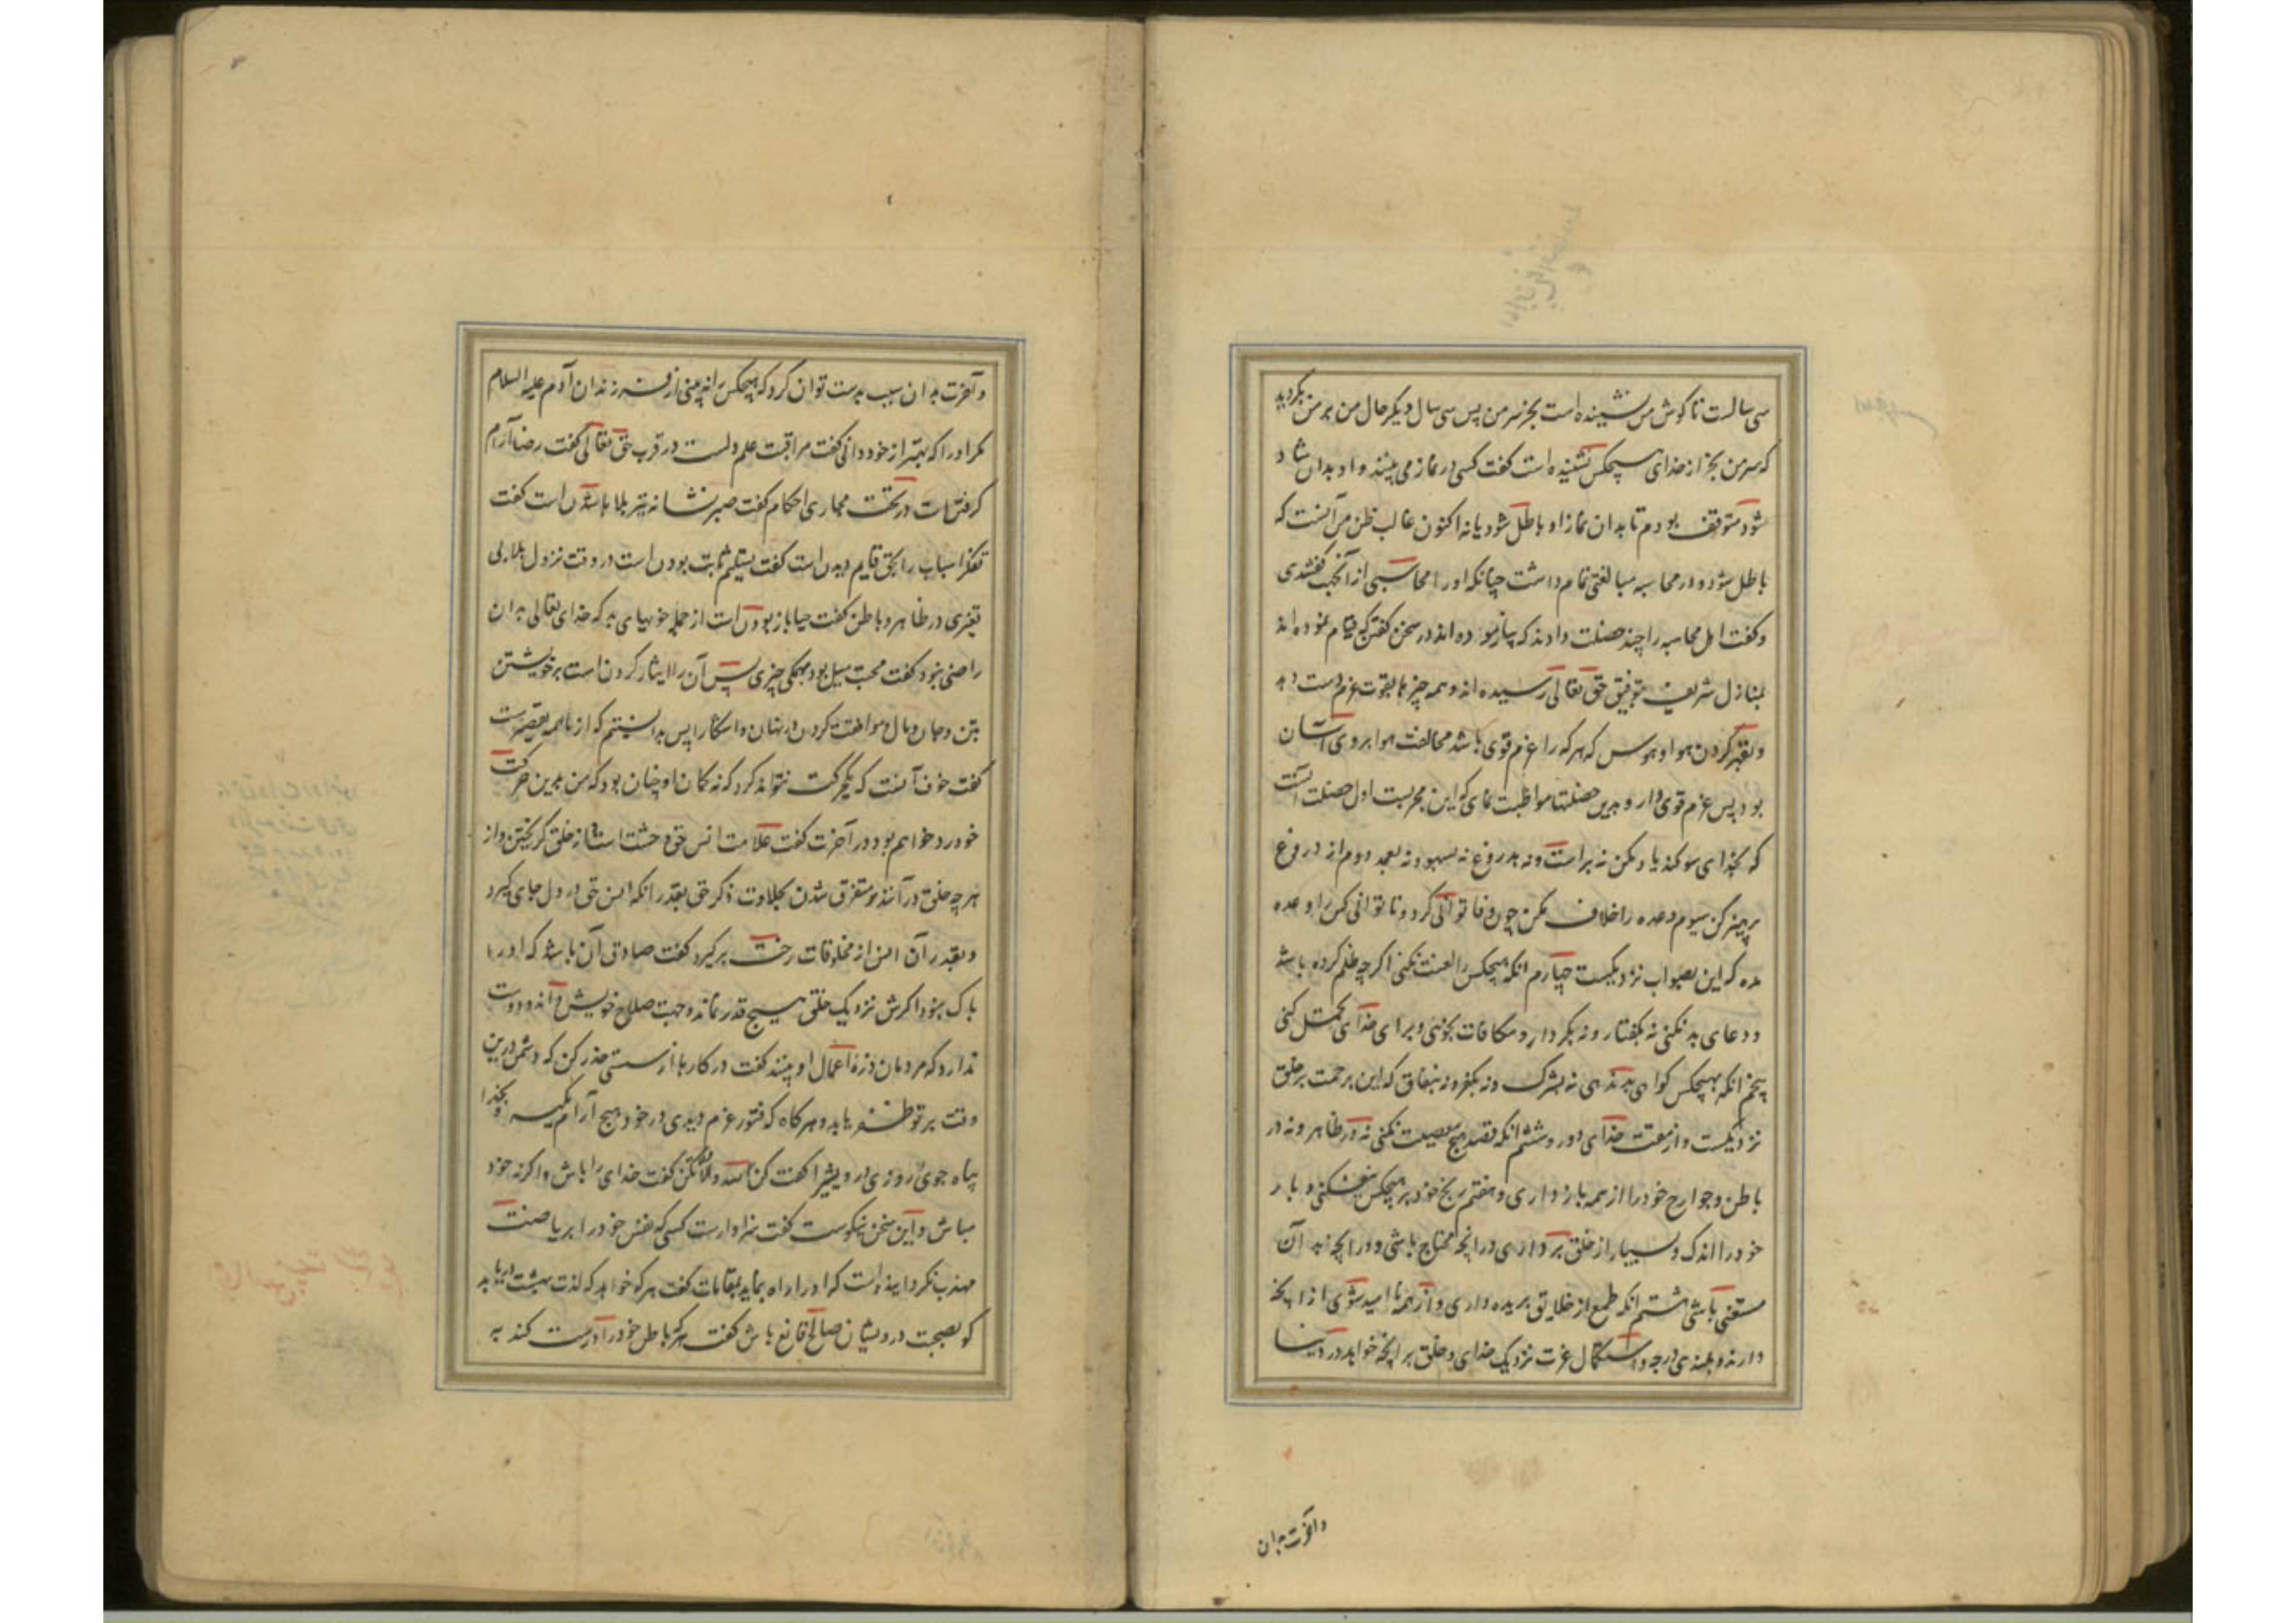 سی سالست تا گوش من نشینده است بجز سر من پس سی سال دیگر حال من بر من بگردید
که سر من بجز از خدای هیچکس نشنیده است گفت کسی در نماز می بینند و او بدان شاد
شود متوقف بودم تا بدان نماز او باطل شود یا نه اکنون غالب ظن من آنست که
باطل شود و در محاسبه مبالغتی تمام داشت چنانکه او را محاسبی از آنجهت گفتندی
و گفت اهل محاسبه را چند خصلت دادند که بیازموده اند در سخن گفتن که قیام نموده اند
بمنازل شریف بتوفیق حق تعالی رسیده اند و همه چیزها بقوت عزم دست دهد
و بقهر کردن هوا و هوس که هر که را عزم قوی باشد مخالفت هوا بر وی آسان
بود پس عزم قوی دار و بدین خصلتها مواظبت نمای که این مجربست اول خصلت آنست
که بخدای سوگند یاد مکن نه براست و نه بدروغ نه بسهو و نه بعمد دوم از دروغ
پرهیز کن سیوم وعده را خلاف مکن چون وفا توانی کرد و تا توانی کس را وعده
مده که این بصواب نزدیکست چهارم انکه هیچکس را لعنت نکنی اگرچه ظلم کرده باشد
و دعای بد نکنی نه بگفتار و نه بکردار و مکافات نجوئی و برای خدای تحمل کنی
پنجم انکه بهیچکس گواهی بد ندهی نه بشرک و نه بکفر و نه بنفاق که این برحمت بر خلق
نزدیکست و از مقت خدای دور و ششم انکه قصد هیچ معصیت نکنی نه در ظاهر و نه در
باطن و جوارح خود را از همه باز داری و هفتم رنج خود بر هیچکس نیفکنی و بار
خود را اندک و بسیار از خلق برداری در انچه محتاج باشی و در انچه نه آن
مستغنی باشی هشتم انکه طمع از خلایق بریده داری و از همه ناامید شوی از انچه
دارند و بلندی درجه و استکمال عزت نزدیک خدای و خلق بر انچه خواهد در دنیا
و آخرت بدان
و آخرت بدان سبب بدست توان کرد که هیچکس را نه بینی از فرزندان آدم علیه السلام
مگر او را که بهتر از خود دانی گفت مراقبت علم دلست در قرب حق تعالی گفت رضا آرام
گرفتن است در تحت مجاری احکام گفت صبر نشانه تیر بلا باشدن است گفت
تفکر اسباب را بحق قایم دیدن است گفت تسلیم ثابت بودن است در وقت نزول بلا بی
تغیری در ظاهر و باطن گفت حیا باز بودن است از جمله خوبهای بد که خدای تعالی بدان
راضی نبود گفت محبت میل بود بهمگی چیزی پس آن را ایثار کردن است بر خویشتن
بتن و جان و مال و موافقت کردن در نهان و آشکارا پس بدانستم که از ما همه تقصیرست
گفت خوف آنست که یک حرکت نتواند کرد که نه گمان او چنان بود که من بدین حرکت
خورد خواهم بود در آخرت گفت علامت انس حق وحشت است از خلق و گریختن و از
هر چه خلق در آنند و متفرق شدن بحلاوت ذکر حق بقدر انکه انس حق در دل جای گیرد
و بقدر آن انس از مخلوقات رخت برگیرد گفت صادق آن باشد که او را
باک نبود اگرش نزدیک خلق هیچ قدر نماند و جهت صلاح خویش داند و دوست
ندارد که مردمان ذره اعمال او بینند گفت در کارها از سستی حذر کن که دشمن درین
وقت بر تو ظفر یابد و هرگاه که فتور عزم دیدی در خود هیچ آرام مگیر و بخدا
پناه جوی روزی درویشی را گفت کن لله والا لاتکن گفت خدای را باش و اگر نه خود
مباش و این سخن نیکوست گفت سزاوارست کسی که نفس خود را بریاضت
مهذب گرداینده است که او را راه نماید بمقامات گفت هر که خواهد که لذت بهشت دریابد
گو بصحبت درویشان صالح قانع باش گفت هر که باطن خود را درست کند به